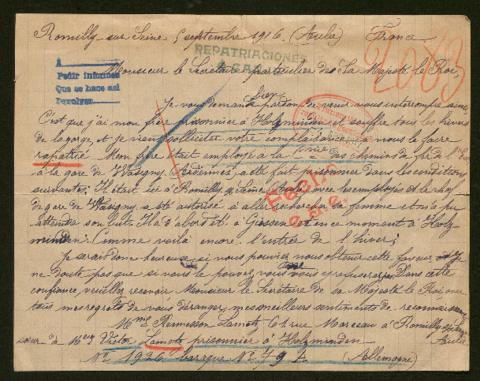 Romilly sur Seine 5 septembre 1916 (Aube) France
REPATRIACIONES
2083
Monsieur le Secrétaire particulier de Sa Majesté le Roi
A
Pedir informes
Que se hace así
Devolver
bien
Je vous demande pardon de vous interrompre ainsi
C'est que j'ai mon frère prisonnier à Holzminden et souffre tous les hivers
de la gorge, et je viens solliciter votre complaisance, nous le faire
rapatrié Mon frère était employé à la des chemins de fer de l'Est
à la gare de Wasigny, Ardennes, a été fait prisonnier dans les conditions
suivantes; Il était à Romilly s/ Seine avec les employés et le chef
de gare de Wasigny, a été autorisé à aller rechercher sa femme et n'a pu
atteindre son but Il a d'abord été à Giessen et en ce moment à Holz
minden. Comme voilà encore l'entrée de l'hiver;
Je serai donc heureuse si vous pouviez nous obtenir cette faveur et je
ne doute pas que si vous le pouvez, vous nous refuserez pas Dans cette
confiance, veuillez recevoir Monsieur le Secrétaire de Sa Majesté le Roi, avec
tous mes regrets de vous déranger, mes meilleurs sentiments de reconnaissance
Mme Remisson Lamote, rue Marceau à Romilly s/ Seine
Aube
sœur à Mr Victor Lamote prisonnier à Holzminden
No 1926 baraque No 79 (Allemagne)